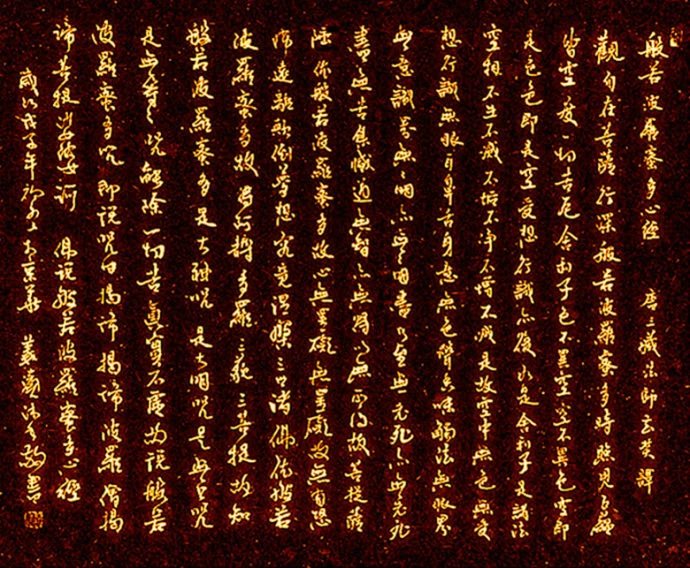 般若波羅蜜多心經 唐三藏法師玄奘譯
觀自在菩薩行深般若波羅蜜多時照見五蘊
皆空度一切苦厄舍利子色不異空空不異色空即
是色色即是空受想行識亦復如是舍利子是諸法
空相不生不滅不垢不淨不增不減是故空中無色無受
想行識無眼耳鼻舌身意無色聲香味觸法無眼界
無意識界無無明亦無無明盡乃至無老死亦無老死
盡無苦集滅道無智亦無得以無所得故菩提薩
埵依般若波羅蜜多故心無罣礙無罣礙故無有恐
怖遠離顛倒夢想究竟涅槃三世諸佛依般若
波羅蜜多故得阿耨多羅三藐三菩提故知
般若波羅蜜多是大神咒是大明咒是無上咒
是無等等咒能除一切苦真實不虛說般若
波羅蜜多咒即說咒曰揭諦揭諦波羅僧揭
諦菩提娑婆訶 佛說般若波羅蜜多心經
歲次戊子年初書